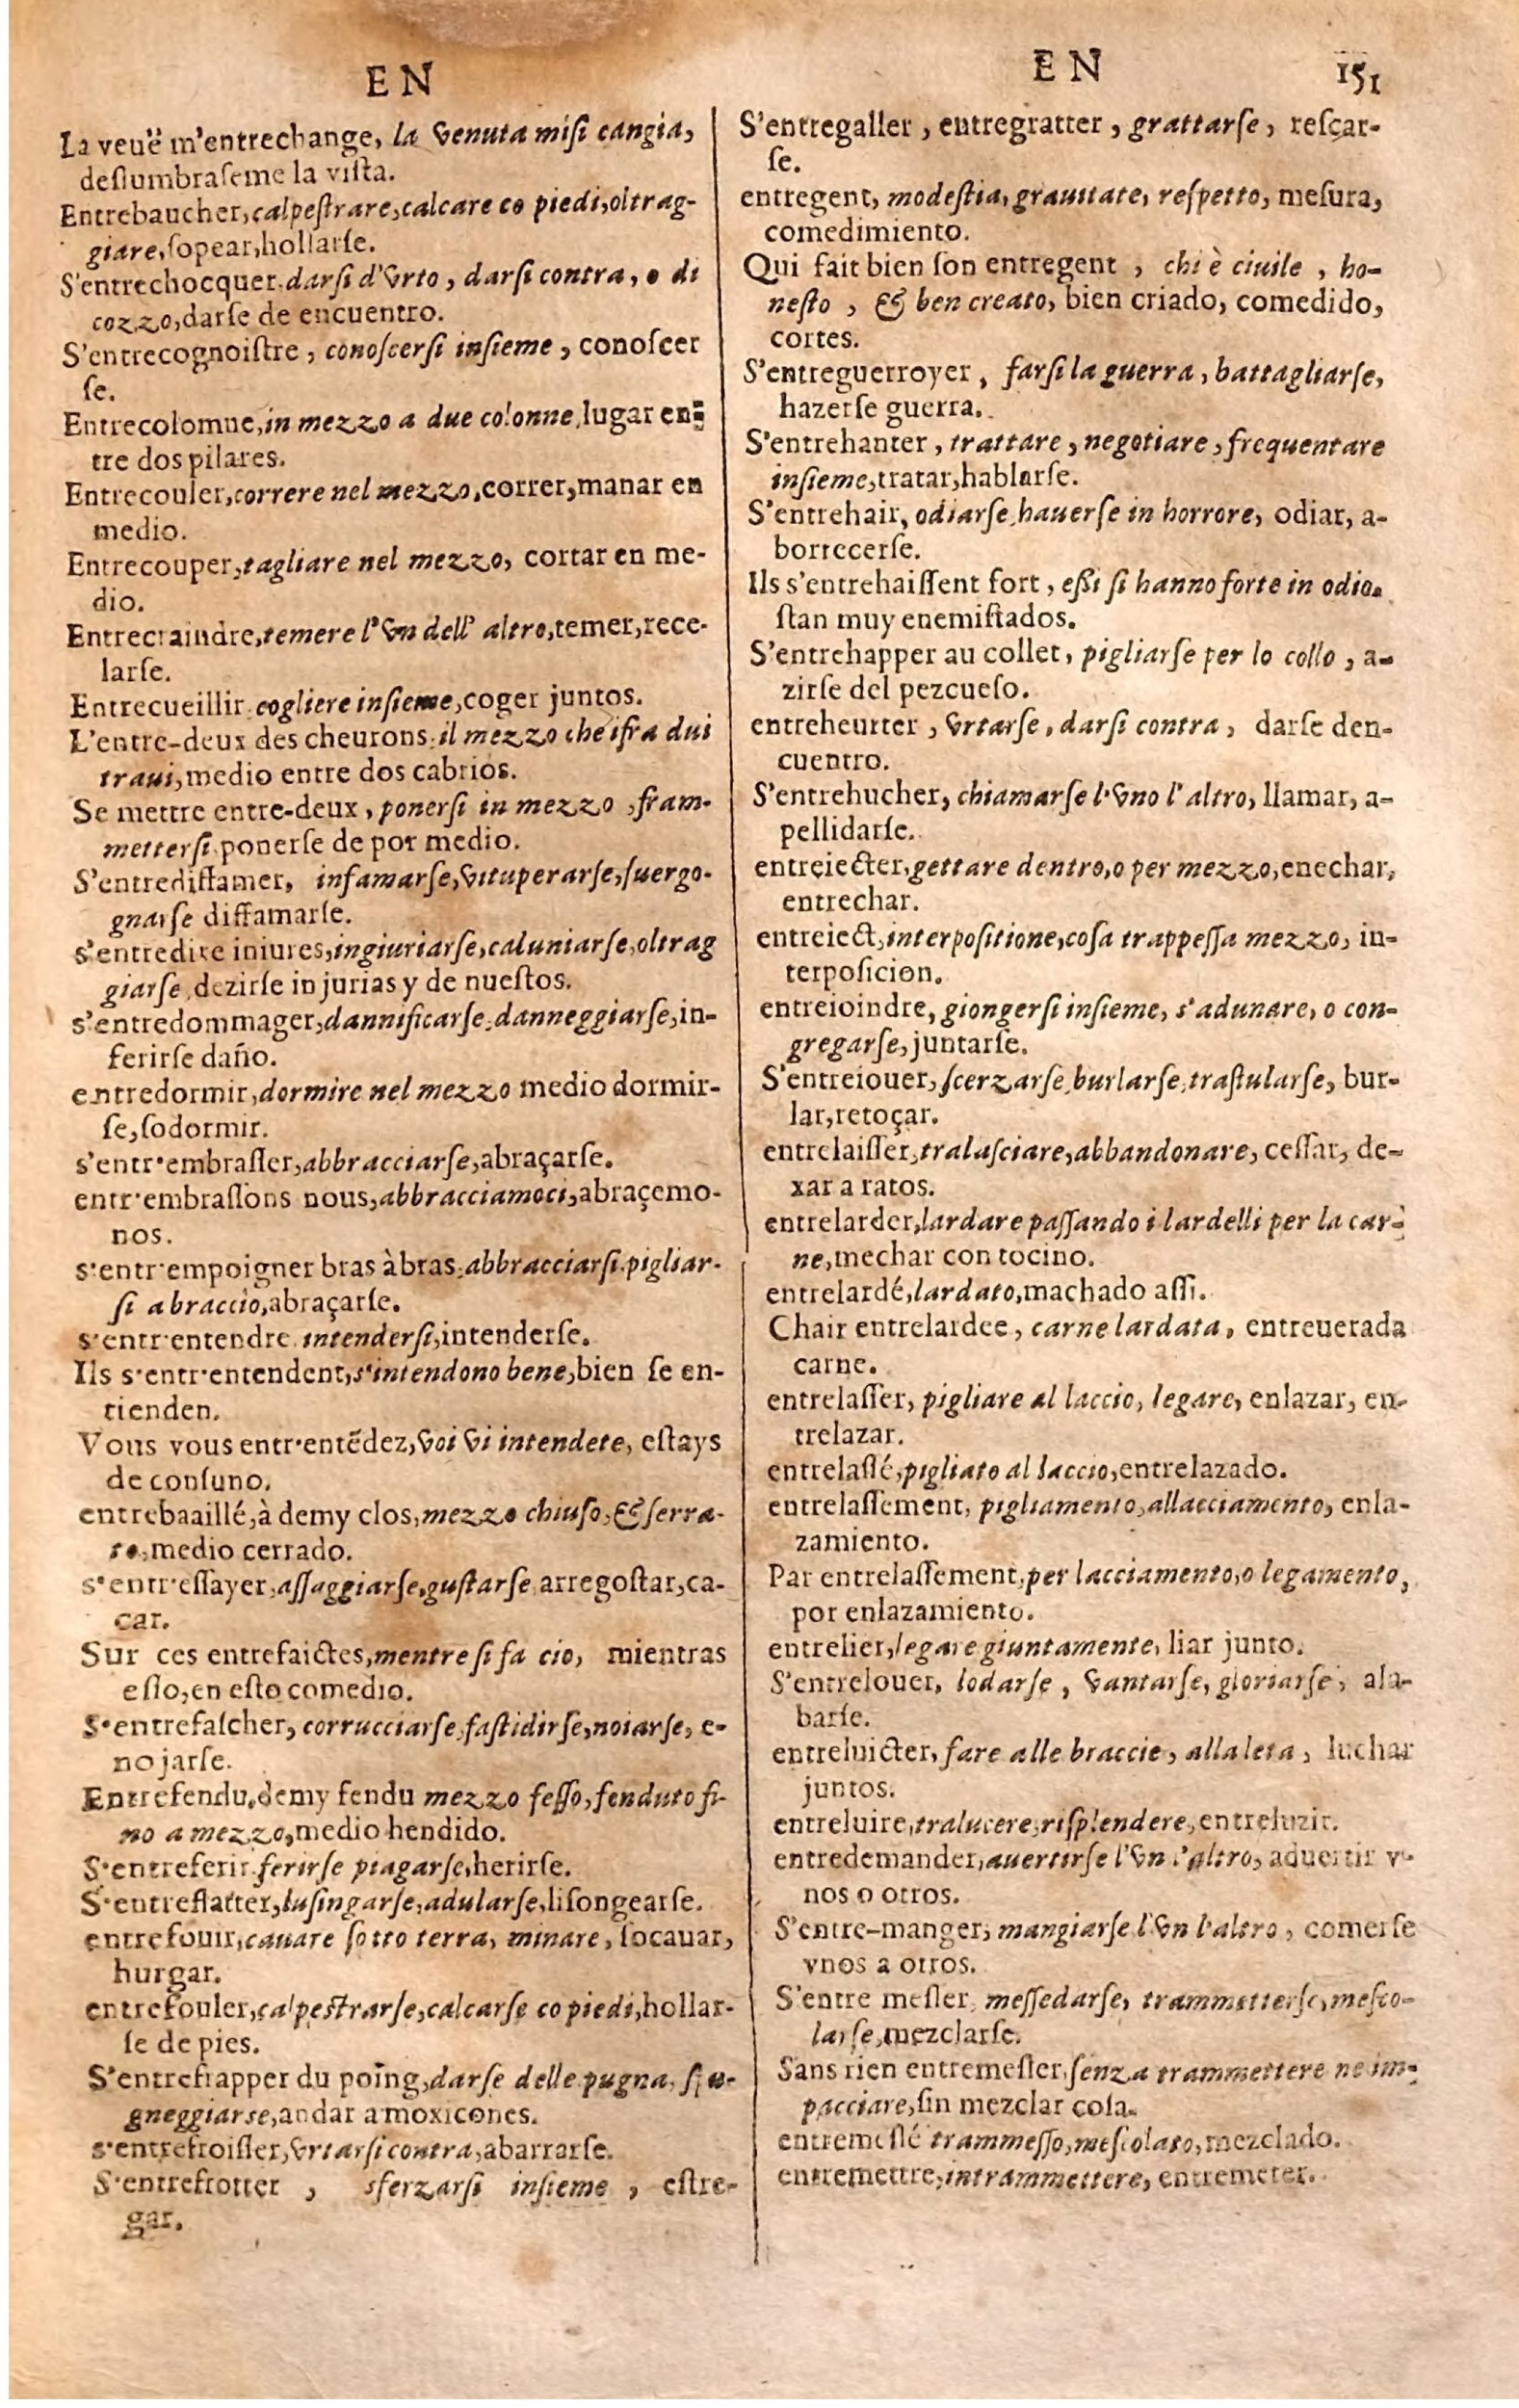 EN
La veuë m'entrechange, la venuta misi cangia,
deslumbraseme la vista.
Entrebaucher, calpestrare, calcare co piedi, oltrag-
giare, sopear, hollarse.
S'entrechocquer. darsi d'vrto, darsi contra, o di
cozzo, darse de encuentro.
S'entrecognoistre, conoscersi insieme, conoscer
se.
Entrecolomne, in mezzo a due colonne, lugar en-
tre dos pilares.
Entrecouler, correre nel mezzo, correr, manar en
medio.
Entrecouper, tagliare nel mezzo, cortar en me-
dio.
Entrecraindre, temere l'vn dell' altro, temer, rece-
larse.
Entrecueillir. cogliere insieme, coger juntos.
L'entre-deux des cheurons. il mezzo che ifra dui
traui, medio entre dos cabrios.
Se mettre entre-deux, ponersi in mezzo, fram-
mettersi. ponerse de por medio.
S'entrediffamer, infamarse, vituperarse, suergo-
gnarse diffamarse.
s'entredire iniures, ingiuriarse, caluniarse, oltrag
giarse, dezirse injurias y de nuestos.
s'entredommager, dannificarse, danneggiarse, in-
ferirse daño.
entredormir, dormire nel mezzo medio dormir-
se, sodormir.
s'entr'embrasser, abbracciarse, abraçarse.
entr'embrassons nous, abbracciamoci, abraçemo-
nos.
s'entr'empoigner bras à bras, abbracciarsi. pigliar-
si a braccio, abraçarse.
s'entr'entendre. intendersi, intenderse.
Ils s'entr'entendent, s'intendono bene, bien se en-
tienden.
Vous vous entr'entēdez, voi vi intendete, estays
de consuno.
entrebaaillé, à demy clos, mezzo chiuso, & serra-
to, medio cerrado.
s'entr'essayer, assaggiarse, gustarse arregostar, ca-
car.
Sur ces entrefaictes, mentre si fa cio, mientras
esso, en esto comedio.
S'entrefascher, corrucciarse, fastidirse, noiarse, e-
nojarse.
Entrefendu, demy fendu mezzo fesso, fenduto fi-
no a mezzo, medio hendido.
S'entreferir. ferirse piagarse, herirse.
S'entreflatter, lusingarse, adularse, lisongearse.
entrefouir, cauare sotto terra, minare, socauar,
hurgar.
entrefouler, calpestrarse, calcarse co piedi, hollar-
se de pies.
S'entrefrapper du poing, darse delle pugna, spu-
gneggiarse, andar a moxicones.
s'entrefroisser, vrtarsi contra, abarrarse.
S'entrefrotter, sferzarsi insieme, estre-
gar.
EN 151
S'entregaller, entregratter, grattarse, resçar-
se.
entregent, modestia, grauitate, respetto, mesura,
comedimiento.
Qui fait bien son entregent, chi è ciuile, ho-
nesto, & ben creato, bien criado, comedido,
cortes.
S'entreguerroyer, farsi la guerra, battagliarse,
hazerse guerra.
S'entrehanter, trattare, negotiare, frequentare
insieme, tratar, hablarse.
S'entrehair, odiarse, hauerse in horrore, odiar, a-
borrecerse.
Ils s'entrehaissent fort, essi si hanno forte in odio.
stan muy enemistados.
S'entrehapper au collet, pigliarse per lo collo, a-
zirse del pezcueso.
entreheurter, vrtarse, darsi contra, darse den-
cuentro.
S'entrehucher, chiamarse l'vno l'altro, llamar, a-
pellidarse.
entreiecter, gettare dentro, o per mezzo, enechar,
entrechar.
entreiect, interpositione, cosa trappessa mezzo, in-
terposicion.
entreioindre, giongersi insieme, s'adunare, o con-
gregarse, juntarse.
S'entreiouer, scerzarse, burlarse, trastularse, bur-
lar, retoçar.
entrelaisser, tralasciare, abbandonare, cessar, de-
xar a ratos.
entrelarder, lardare passando i lardelli per la car-
ne, mechar con tocino.
entrelardé, lardato, machado assi.
Chair entrelardee, carne lardata, entreuerada
carne.
entrelasser, pigliare al laccio, legare, enlazar, en-
trelazar.
entrelassé, pigliato al laccio, entrelazado.
entrelassement, pigliamento, allacciamento, enla-
zamiento.
Par entrelassement, per lacciamento, o legamento,
por enlazamiento.
entrelier, legare giuntamente, liar junto.
S'entrelouer, lodarse, vantarse, gloriarse, ala-
barse.
entreluicter, fare alle braccie, alla leta, luchar
juntos.
entreluire, tralucere, risplendere, entreluzir.
entredemander, auertirse l'vn l'altro, aduertir v-
nos o otros.
S'entre-manger, mangiarse l'vn l'altro, comerse
vnos a otros.
S'entre mesler, messedarse, trammetterse, mesco-
larse, mezclarse.
Sans rien entremesler, senza trammettere ne im-
pacciare, sin mezclar cosa.
entremeslé trammesso, mescolato, mezclado.
entremettre, intrammettere, entremeter.